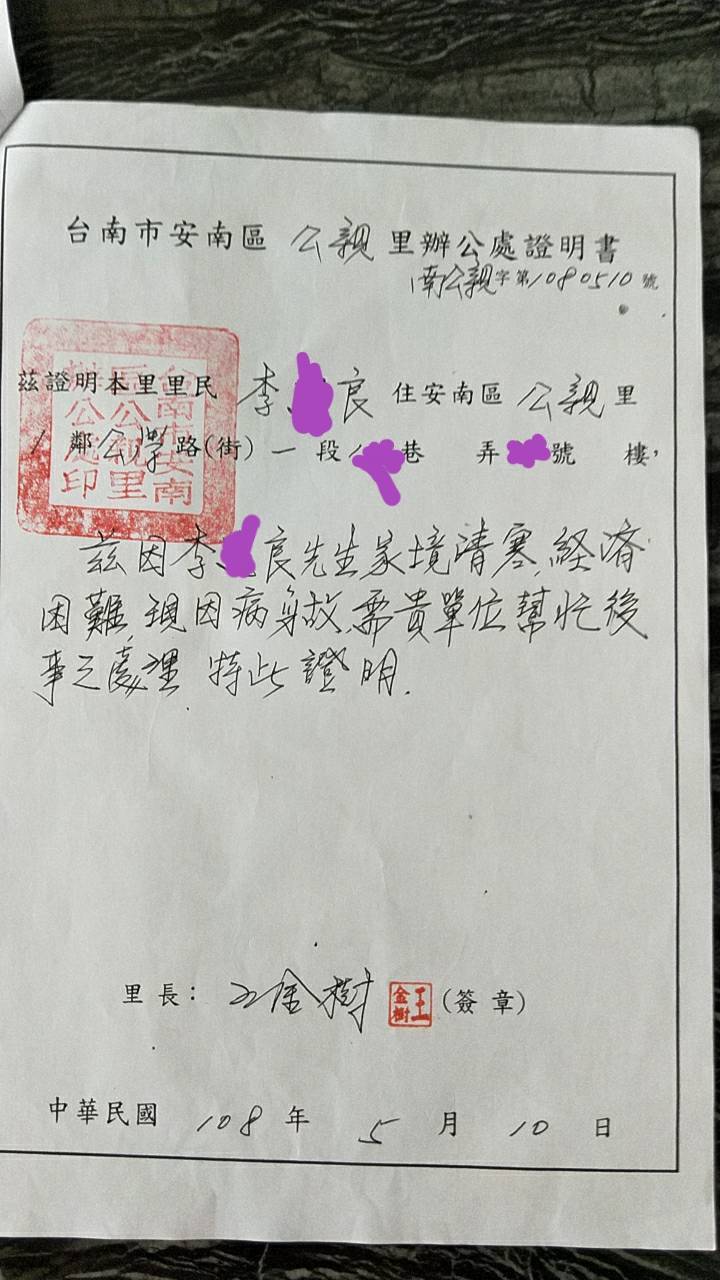 台南市安南區 公親 里辦公處證明書
南公親字第1080510號
茲證明本里里民 李 良 住安南區 公親 里
1 鄰 公學 路(街) 一 段 巷 弄 號 樓,
台南市安南區公親里辦公處印
茲因李 良先生家境清寒,経濟
困難,現因病身故,需貴單位幫忙後
事之處理 特此證明.
里長: 王金樹 王金樹 (簽章)
中華民國 108 年 5 月 10 日